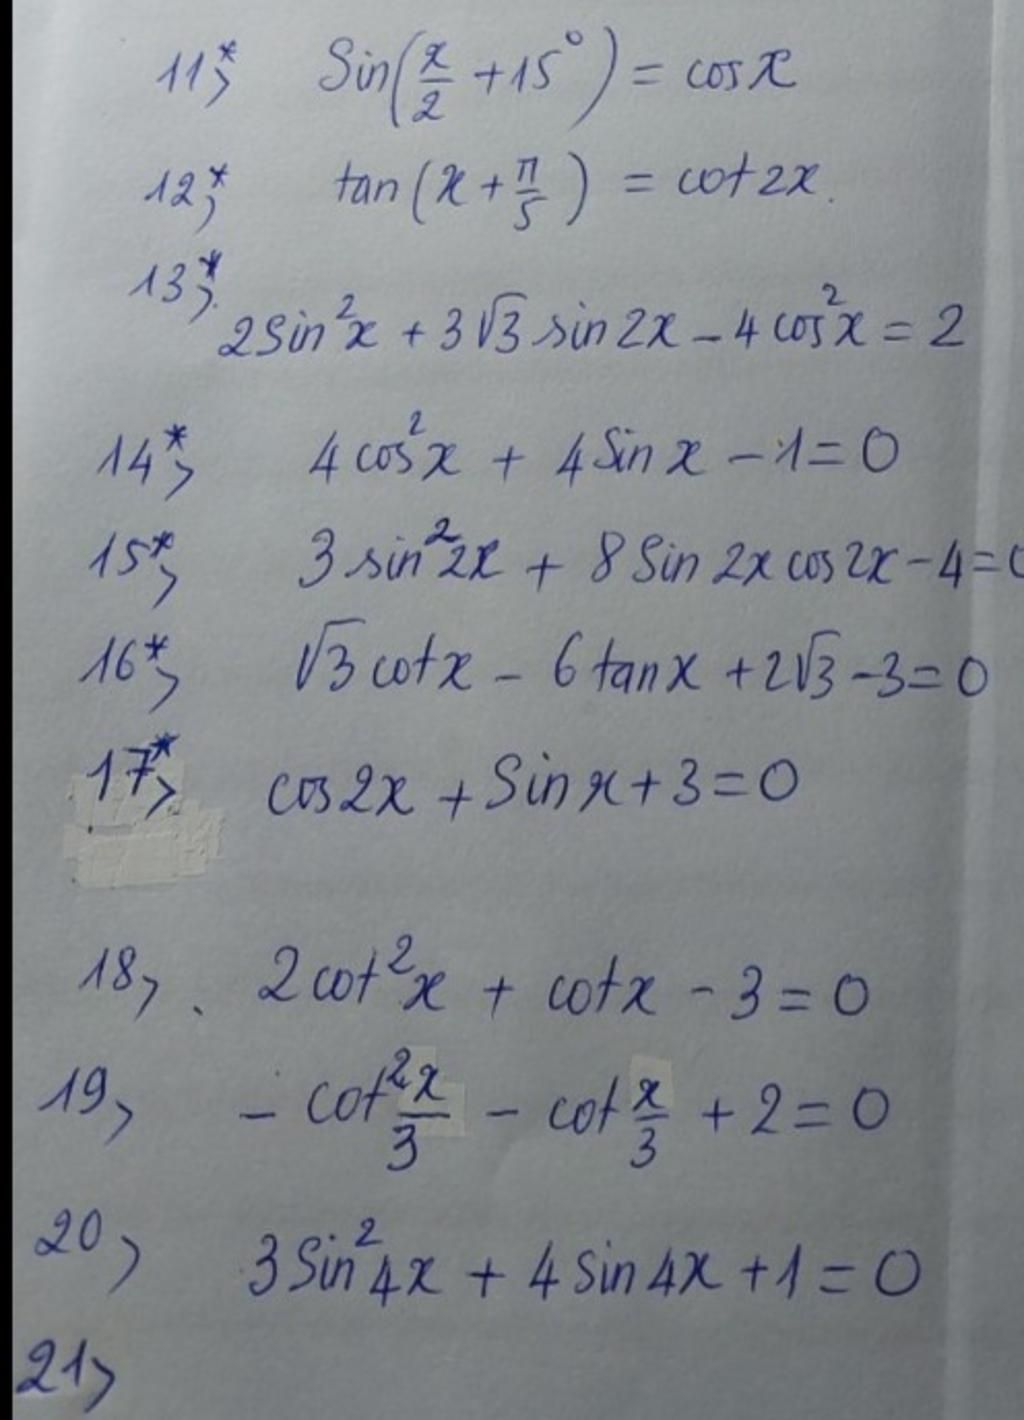 11*, Sin(x/2 + 15°) = cosx
12*, tan(x + π/5) = cot2x.
13*,
2Sin²x + 3√3 sin2x - 4cos²x = 2
14*, 4cos²x + 4Sinx - 1 = 0
15*, 3sin²2x + 8Sin2xcos2x - 4 = 0
16*, √3cotx - 6tanx + 2√3 - 3 = 0
17*, cos2x + Sinx + 3 = 0
18, . 2cot²x + cotx - 3 = 0
19, - cot²x/3 - cotx/3 + 2 = 0
20, 3Sin²4x + 4sin4x + 1 = 0
21,